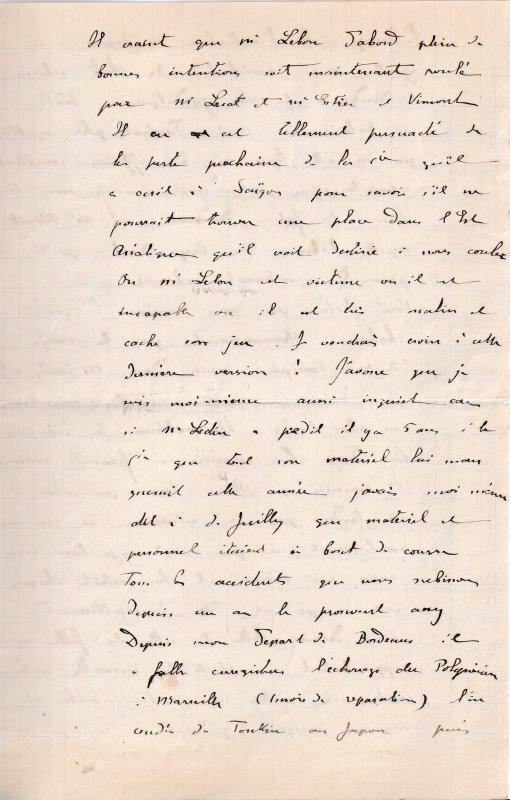 Il craint que mr Lebon d'abord plein de
bonnes intentions soit maintenant roulé
par Mr Lecat et mr Estier et Vimont
Il en est tellement persuadé de
la perte prochaine de la Cie qu'il
a écrit à Saïgon pour savoir s'il ne
pourrait trouver une place dans l'Est
Asiatique qu'il voit destiné à nous couler
Ou mr Lebon est victime ou il est
incapable ou il est très malin et
cache son jeu. Je voudrais croire à cette
dernière version! J'avoue que je
suis moi-même aussi inquiet car
si Mr Ledin a prédit il y a 5 ans à la
Cie que tout son matériel lui man
querait cette année j'avais moi même
dit à de Juilly que matériel et
personnel étaient à bout de course
Tous les accidents que nous subissons
depuis un an le prouvent assez
Depuis mon départ de Bordeaux il
a fallu enregistrer l'échouage du Polynésien
à Marseille (1 mois de réparation) l'in
cendie du Tonkin au Japon puis